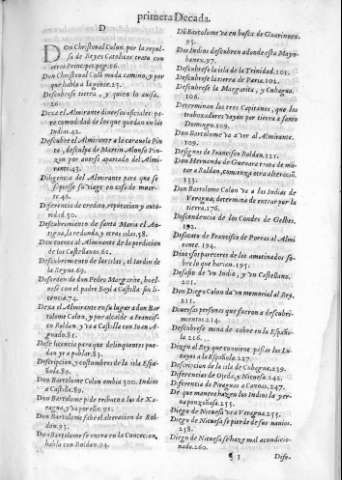 primera Decada.
D
DOn Christoual Colon por la repul-
sa de Reyes Catolicos trata con
otros Principes pag.16.
Don Christoual Coló muda camino, y por
que habla a la gente.23.
Descubrese tierra, y quien la auisa.
26.
Dexa el Almirante diuersos oficiales pa-
ra comodidad de los que quedan en las
Indias.42.
Descubre el Almirante a la carauela Pin
ta, defensa de Martin Alonso Pin-
çon por auerse apartado del Almi-
rante.43.
Diligencia del Almirante para que se
supiesse su viage en caso de muer-
te.46.
Diferencia de credito, reputacion y auto-
ridad.50.
Descubrimiento de santa Maria el An-
tigua, la redonda, y otras islas.58.
Don cuenta al Almirante de la perdicion
de los Castellanos.61.
Descubrimiento de las islas, el Iardin de
la Reyna.69.
Desorden de don Pedro Margarite, buel-
uese con el padre Boyl a Castilla sin li-
cencia.74.
Dexa el Almirante en su lugar a don Bar
tolome Colon, y por alcalde a Francisco
Roldan, y va a Castilla con Iuan A-
guado.81.
Dase licencia para que delinquentes pue-
dan yr a poblar.83.
Descripcion, y costumbres de la isla Espa-
ñola.80.
Don Bartolome Colon embia 300. Indios
a Castilla.89.
Don Bartolome pide tributo a los de Xa-
ragua, y va por ello.91.
Don Bartolome sabe el alteracion de Rol-
dan.93.
Don Bartolome se entra en la Concecion,
habla con Roldan.94.
Dō Bartolome va en busca de Guarionex.
95.
Dos Indios descubren adonde esta Mayo-
banex.97.
Descubrese la isla de la Trinidad.101.
Descubrese la tierra de Paria.102.
Descubrese la Margarita, y Cubagua.
106.
Determinan los tres Capitanes, que los
trabajadores vayan por tierra a santo
Domingo.109.
Don Bartolome va a ver al Almirante.
109.
Designos de Francisco Roldan.121.
Don Hernando de Gueuara trata de ma-
tar a Roldan, comiença otra alteració.
133.
Don Bartolome Colon va a los Indios de
Veragua, determina de entrar por la
tierra.176.
Descendencia de los Condes de Gelbes.
192.
Desacato de Francisco de Porras al Almi
rante.194.
Diuersos pareceres de los amotinados so-
bre lo que harian.195.
Desafio de vn Indio, y vn Castellano.
201.
Don Diego Colon da vn memorial al Rey.
211.
Diuersas personas que fueron a descubri-
mientos.214.
Descubrese mina de cobre en la Españo-
la.216.
Dizen al Rey que conuiene passar los Lu-
cayos a la Española.227.
Descripcion de la isla de Cubagua.239.
Diferencias de Ojeda, y Nicuesa.242.
Diferencia de Piraguas a Canoa.247.
De que manera hazen los Indios la yer-
ua ponçoñosa.255.
Diego de Nicuesa va a Veragua.255.
Diego de Nicuesa se pierde de sus nauios.
258.
Diego de Nicuesa se haze mal acondicio-
nado.260.
¶ 3 Dife-